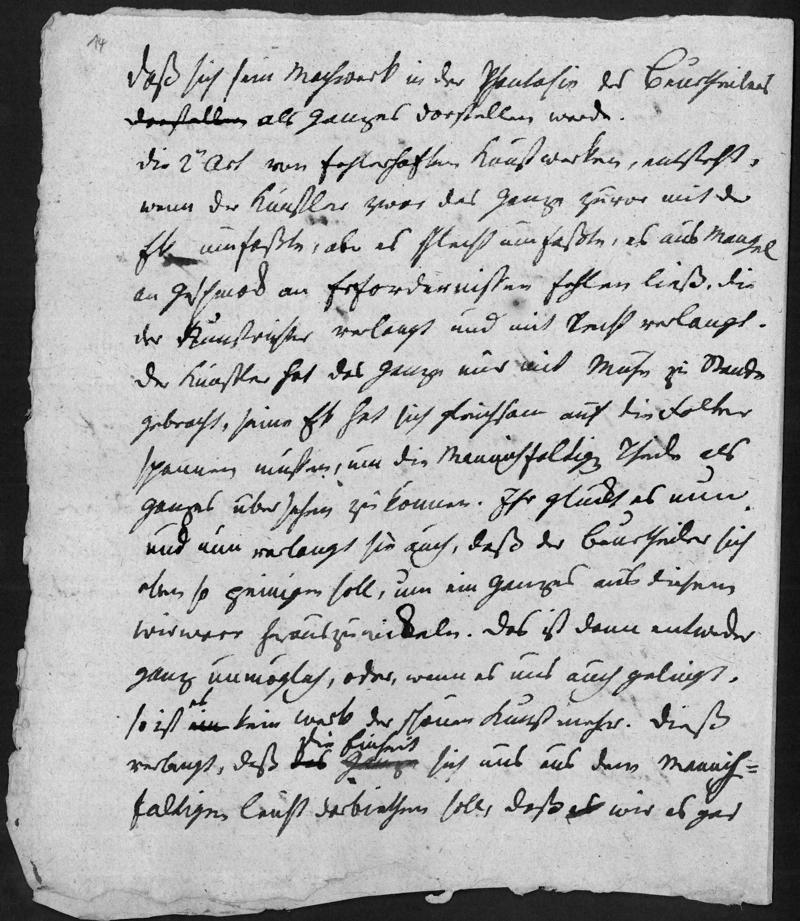 14
daß sich sein Machwerk in der Phantasie des Beurtheilers
darstellen als Ganzes darstellen werde.
die 2te Art von fehlerhaften Kunstwerken, entsteht,
wenn der Künstler zwar das Ganze zuvor mit der
Ek umfaßte, aber es schlecht umfaßte, es aus Mangel
an Geschmak an Erfordernissen fehlen ließ, die
der Kunstrichter verlangt und mit Recht verlangt.
Der Künstler hat das Ganze nur mit Mühe zu Stande
gebracht, seine Ek hat sich gleichsam auf die Folter
spannen müßen, um die Mannichfaltige Theile als
Ganzes übersehen zu können. Ihr glückt es nun,
und nun verlangt sie auch, daß der Beurtheiler sich
eben so peinigen soll, um ein Ganzes aus diesem
wirwarr herauszuwickeln. Das ist dann entweder
ganz unmöglich, oder, wenn es uns auch gelingt,
so ist es ein kein werk der schönen Kunst mehr. Dieß
verlangt, daß das Ganze die Einheit sich uns aus dem Mannich=
faltigen leicht darbiethen soll, daß es wir es gar